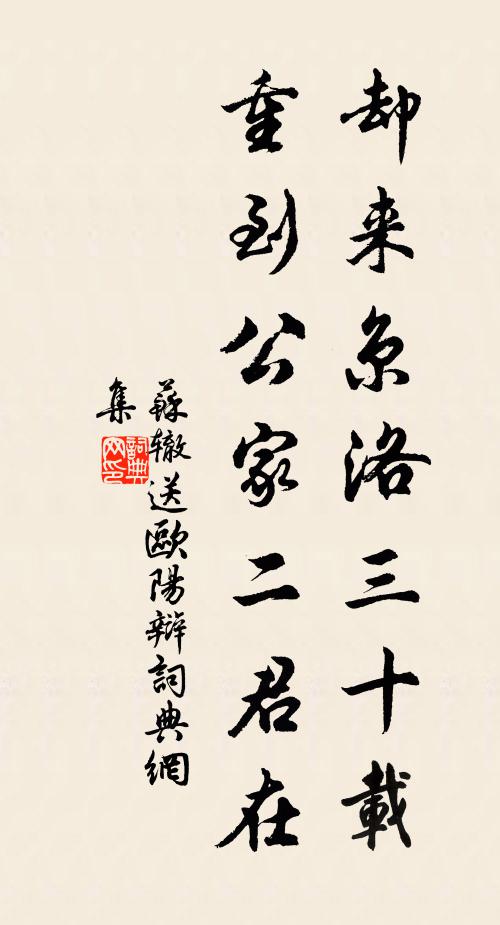 却来京洛三十載
重到公家二君在
蘇辙送歐陽辯詞典網
集
詞典網印